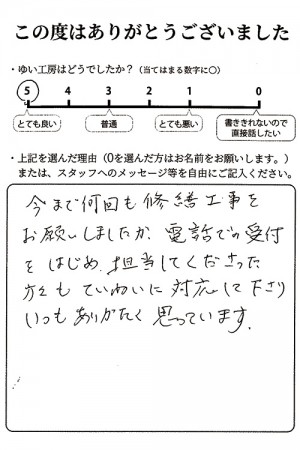 この度はありがとうございました
・ゆい工房はどうでしたか？（当てはまる数字に〇）
5 4 3 2 1 0
とても良い 普通 とても悪い 書ききれないので
直接話したい
・上記を選んだ理由（0を選んだ方はお名前をお願いします。）
または、スタッフへのメッセージ等を自由にご記入ください。
今まで何回も修繕工事を
お願いしましたが、電話での受付
をはじめ、担当してくださった
方々もていねいに対応して下さり
いつもありがたく思っています。